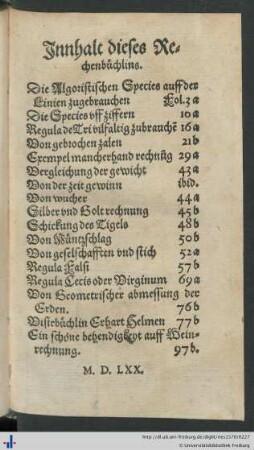 Innhalt dieses Re-
chenbüchlins.
Die Algoristischen Species auff der
Linien zugebrauchen Fol. 3 a
Die Species vff ziffern 10 a
Regula de Tri vilfaltig zubrauchẽ 16 a
Von gebrochen zalen 21 b
Exempel mancherhand rechnũg 29 a
Vergleichung der gewicht 43 a
Von der zeit gewinn ibid.
Von wucher 44 a
Silber vnd Golt rechnung 45 b
Schickung des Tigels 48 b
Von Müntzschlag 50 b
Von geselschafften vnd stich 52 a
Regula Falsi 57 b
Regula Cecis oder Virginum 69 a
Von Geometrischer abmessung der
Erden. 76 b
Visierbüchlin Erhart Helmen 77 b
Ein schöne behendigkeyt auff Wein-
rechnung. 97 b.
M. D. LXX.
http://dl.ub.uni-freiburg.de/diglit/ries1570/0227
© Universitätsbibliothek Freiburg